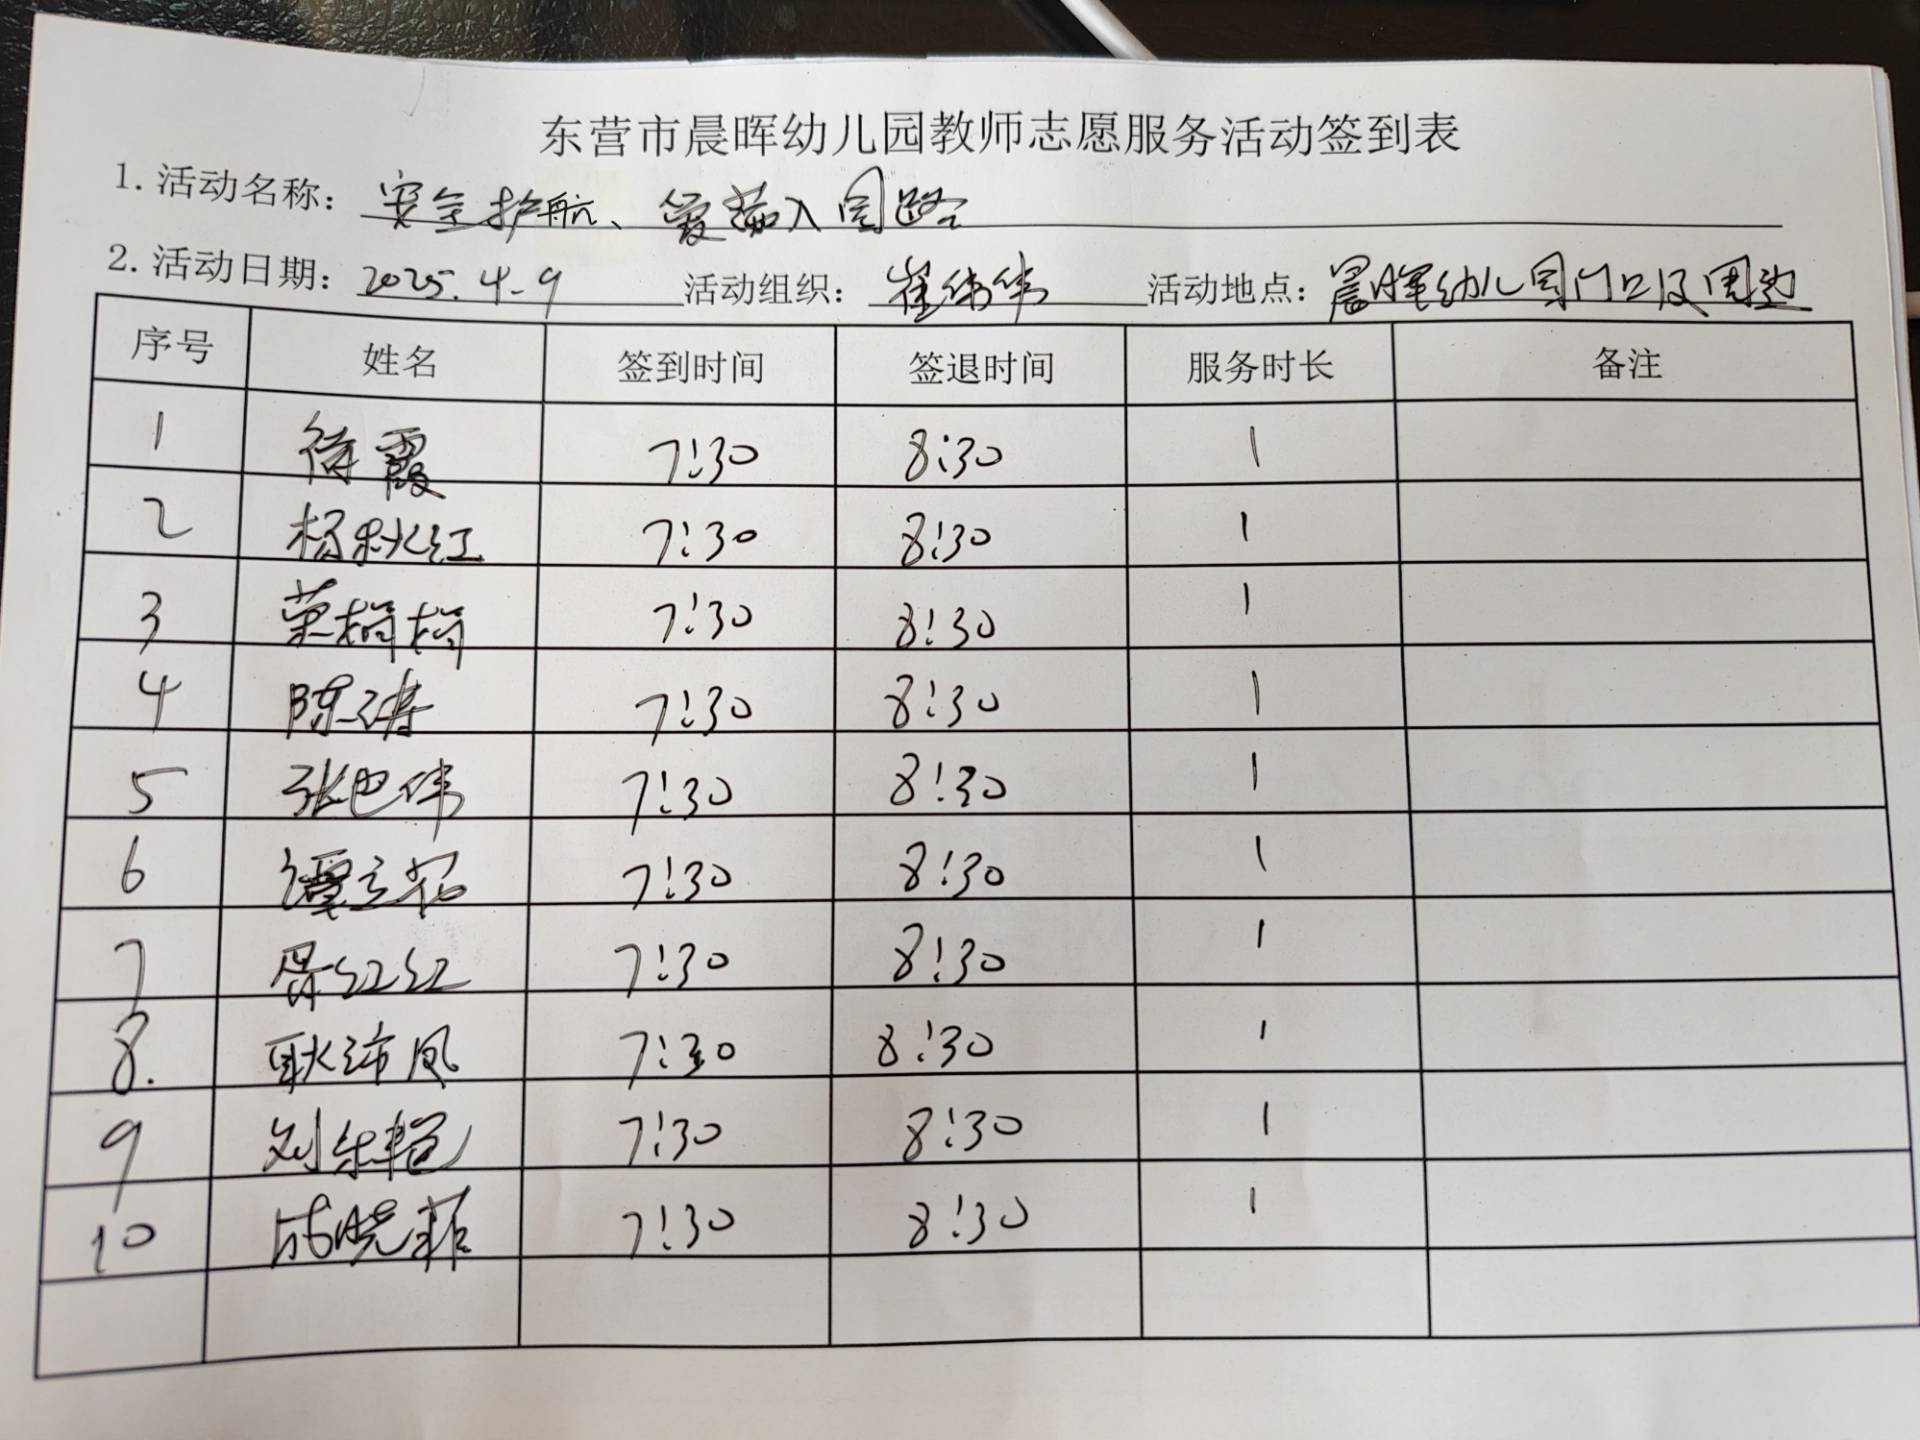 东营市晨晖幼儿园教师志愿服务活动签到表
1. 活动名称：安全护航、爱满入园路
2. 活动日期：2025.4.9 活动组织：崔伟伟 活动地点：晨晖幼儿园门口及周边
序号 姓名 签到时间 签退时间 服务时长 备注
1 徐霞 7:30 8:30 1
2 杨秋红 7:30 8:30 1
3 7:30 8:30 1
4 陈涛 7:30 8:30 1
5 张也伟 7:30 8:30 1
6 谭立 7:30 8:30 1
7 红红 7:30 8:30 1
8. 耿沛凤 7:30 8:30 1
9 刘东艳 7:30 8:30 1
10 成晓菲 7:30 8:30 1